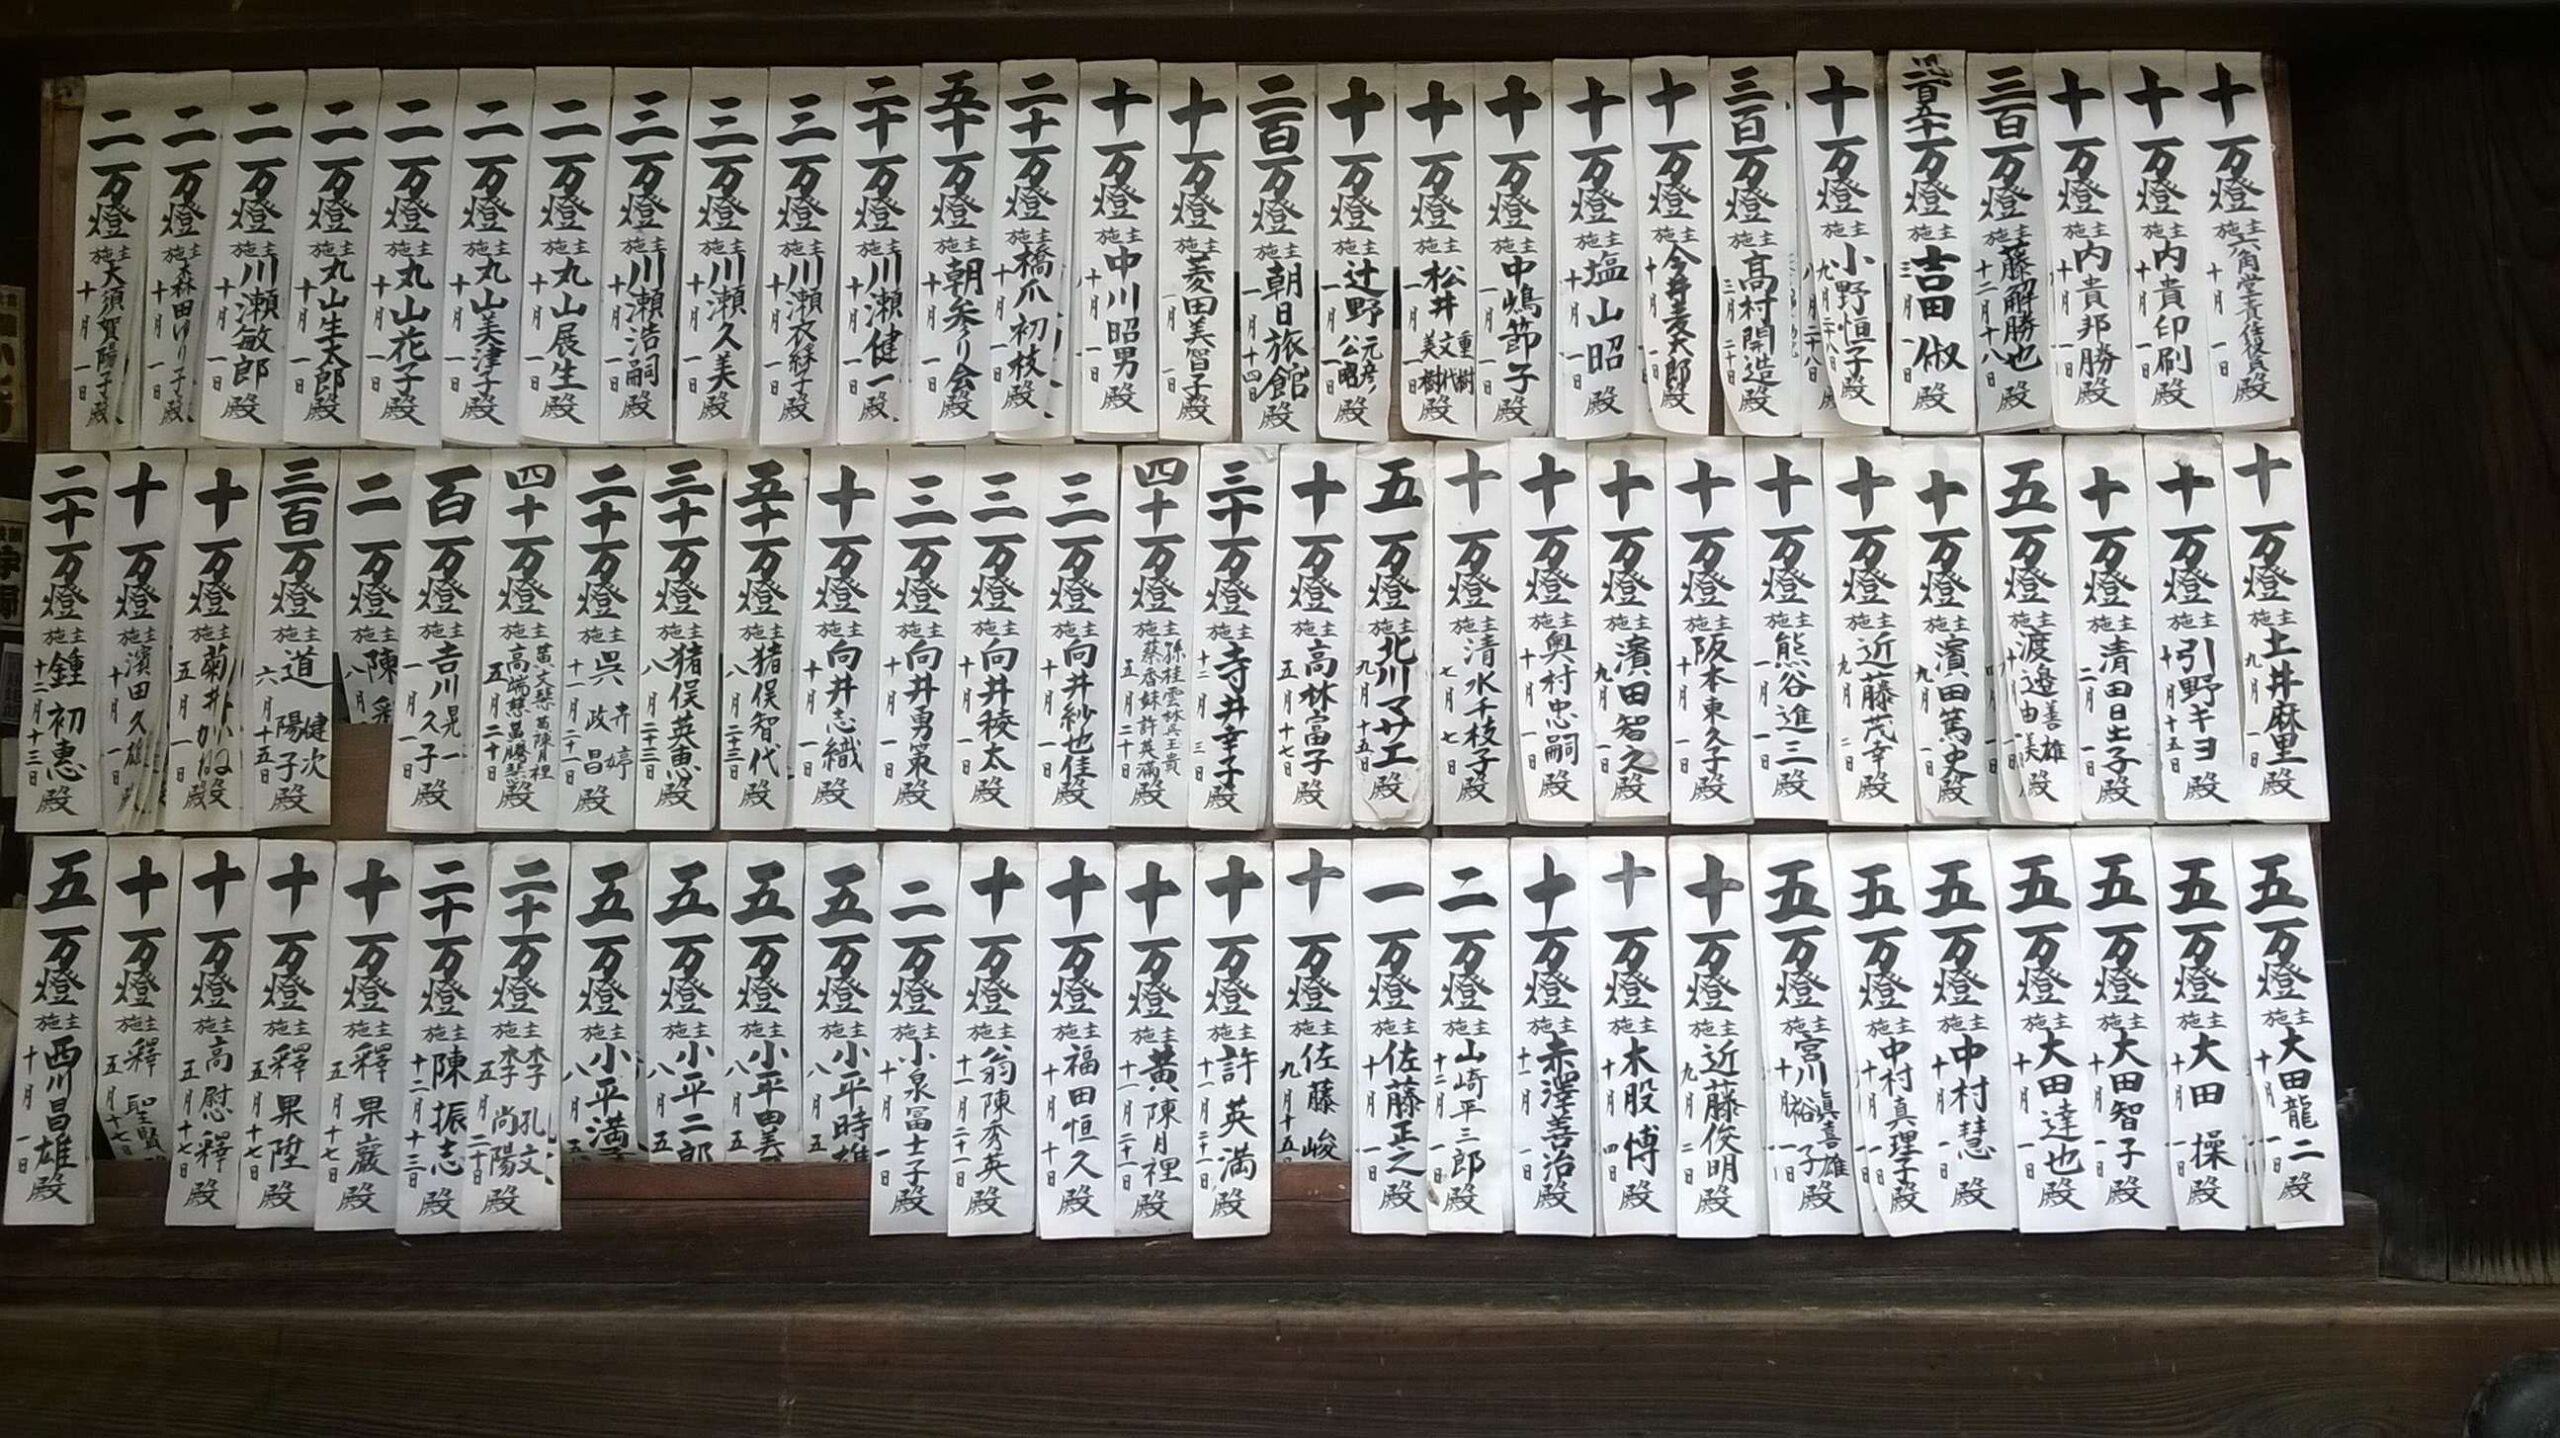 十万燈 施主 十月一日 殿
十万燈 施主 内貴印刷殿 十月一日
十万燈 施主 内貴邦勝殿 十月一日
三百万燈 施主 藤解勝也殿 十二月十八日
二百五十万燈 施主 吉田俶殿 三月一日
十万燈 施主 小野恒子殿 九月二十八日
三百万燈 施主 高村開造殿 三月二十日
十万燈 施主 今井麦太郎殿 十月一日
十万燈 施主 塩山昭殿 十月一日
十万燈 施主 中嶋節子殿 一月一日
十万燈 施主 松井 重樹 文代 美樹 殿 一月一日
十万燈 施主 辻野 元彦 公昭 殿 一月一日
二百万燈 施主 朝日旅館殿 一月十四日
十万燈 施主 菱田美智子殿 一月一日
十万燈 施主 中川昭男殿 十月一日
二十万燈 施主 橋爪初枝殿 十月一日
五十万燈 施主 朝参り会殿 十月一日
二十万燈 施主 川瀬健一殿 十月一日
三万燈 施主 川瀬衣緑子殿 十月一日
三万燈 施主 川瀬久美殿 十月一日
三万燈 施主 川瀬浩嗣殿 十月一日
二万燈 施主 丸山展生殿 十月一日
二万燈 施主 丸山美津子殿 十月一日
二万燈 施主 丸山花子殿 十月一日
二万燈 施主 丸山生太郎殿 十月一日
二万燈 施主 川瀬敏郎殿 十月一日
二万燈 施主 森田ゆり子殿 十月一日
二万燈 施主 大須賀陽子殿 十月一日
十万燈 施主 土井麻里殿 九月一日
十万燈 施主 引野キヨ殿 十月十五日
十万燈 施主 清田日出子殿 二月一日
五万燈 施主 渡邊 善雄 由美 殿 一日
十万燈 施主 濱田篤史殿 九月一日
十万燈 施主 近藤茂幸殿 九月二日
十万燈 施主 熊谷進三殿 一月一日
十万燈 施主 阪本東久子殿 十月一日
十万燈 施主 濱田智之殿 九月一日
十万燈 施主 奥村忠嗣殿 十月一日
十万燈 施主 清水千枝子殿 七月七日
五万燈 施主 北川マサエ殿 九月十五日
十万燈 施主 高林富子殿 五月十七日
三十万燈 施主 寺井幸子殿 十二月三日
四十万燈 施主 孫桂雲 林吳玉貴 蔡香妹 許英滿 殿 五月二十日
三万燈 施主 向井紗也佳殿 十月一日
三万燈 施主 向井稜太殿 十月一日
三万燈 施主 向井勇策殿 十月一日
十万燈 施主 向井志織殿 十月一日
五十万燈 施主 猪俣智代殿 八月二十三日
三十万燈 施主 猪俣英恵殿 八月二十三日
二十万燈 施主 呉 卉婷 政昌 殿 十一月二十一日
四十万燈 施主 黄文琴 黄陳月裡 殿 五月二十日
百万燈 施主 吉川 晃一 久子 殿 一月一日
二万燈 施主 陳 八月
三百万燈 施主 道 健次 陽子 殿 六月十五日
十万燈 施主 菊井かね殿 五月一日
十万燈 施主 濱田久雄殿 十月一日
二十万燈 施主 鍾初惠殿 十二月十三日
五万燈 施主 大田龍二殿 十月一日
五万燈 施主 大田操殿 十月一日
五万燈 施主 大田智子殿 十月一日
五万燈 施主 大田達也殿 十月一日
五万燈 施主 中村慧殿 十月一日
五万燈 施主 中村真理子殿 十月一日
五万燈 施主 宮川 眞喜雄 裕子 殿 十月一日
十万燈 施主 近藤俊明殿 九月二日
十万燈 施主 木股博殿 十月四日
十万燈 施主 赤澤善治殿 十一月一日
二万燈 施主 山崎平三郎殿 十二月一日
一万燈 施主 佐藤正之殿 十月一日
十万燈 施主 佐藤峻 九月十五日
十万燈 施主 許英満殿 十一月二十一日
十万燈 施主 黄陳月裡殿 十一月二十一日
十万燈 施主 福田恒久殿 十月十日
十万燈 施主 翁陳秀英殿 十一月二十一日
二万燈 施主 小泉冨士子殿 十月一日
五万燈 施主 小平時雄 八月五
五万燈 施主 小平由美 八月五
五万燈 施主 小平二郎 八月五
五万燈 施主 小平満子 八月五
二十万燈 施主 李孔文 李尚陽 殿 五月二十日
二十万燈 施主 陳振志殿 十二月十三日
十万燈 施主 釋果巖殿 五月十七日
十万燈 施主 釋果陞殿 五月十七日
十万燈 施主 高慰釋殿 五月十七日
十万燈 施主 釋聖賢 五月十七日
五万燈 施主 西川昌雄殿 十月一日